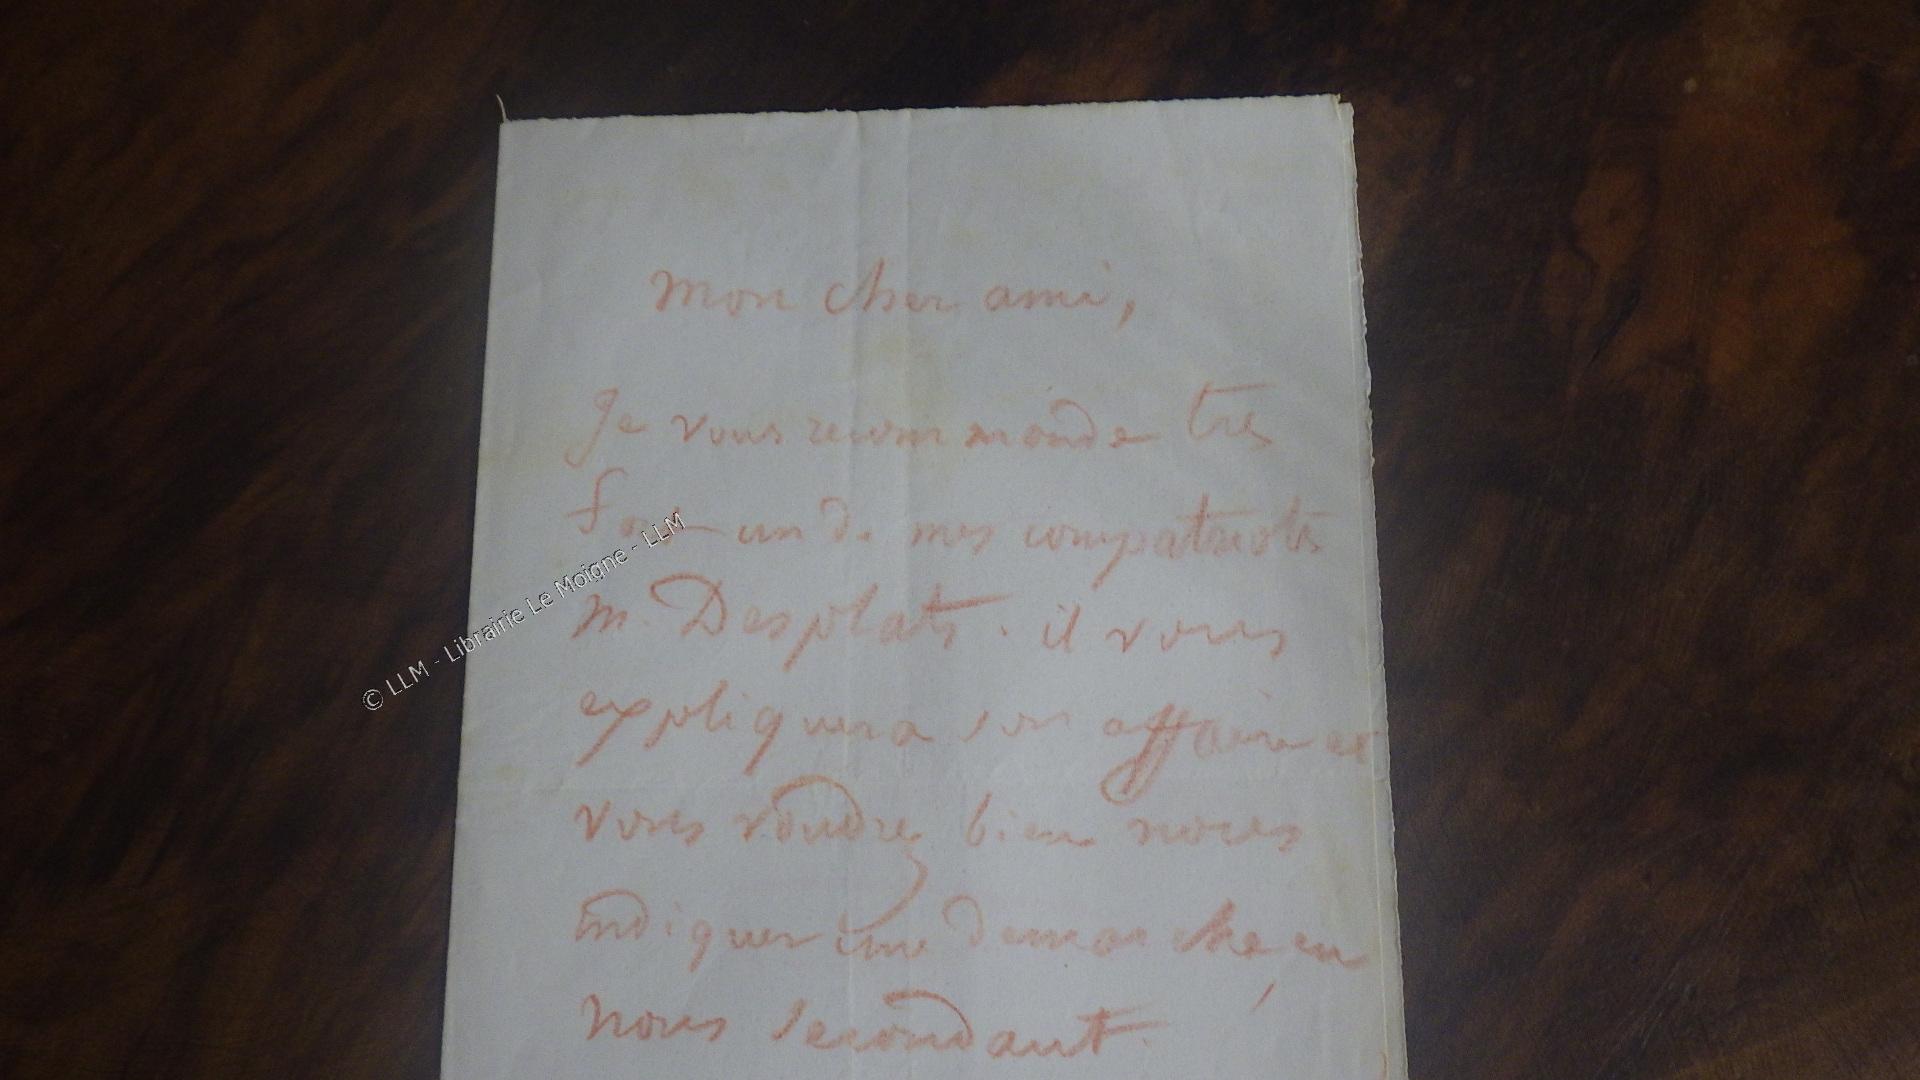 Mon cher ami,
Je vous recommande très
fort un de mes compatriotes
M. Desplats. il vous
expliquera son affaire et
vous voudrez bien nous
indiquer une demarche en
nous secondant.
© LLM - Librairie Le Moigne - LLM